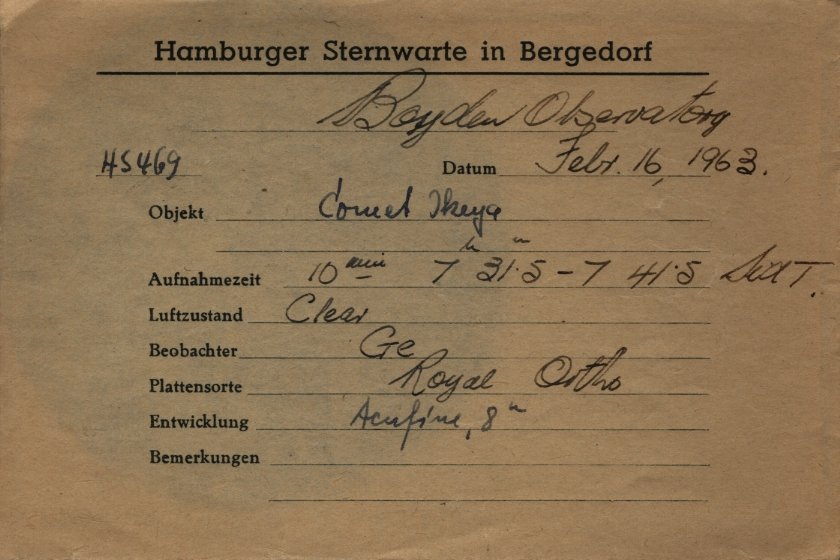 Hamburger Sternwarte in Bergedorf
Boyden Observatory
HS469 Datum Febr. 16, 1963.
Objekt Comet Ikeya
Aufnahmezeit 10 min 7h 31.5 - 7m 41.5 Sid T.
Luftzustand Clear
Beobachter Ge
Plattensorte Royal Ortho
Entwicklung Acufine, 8m
Bemerkungen